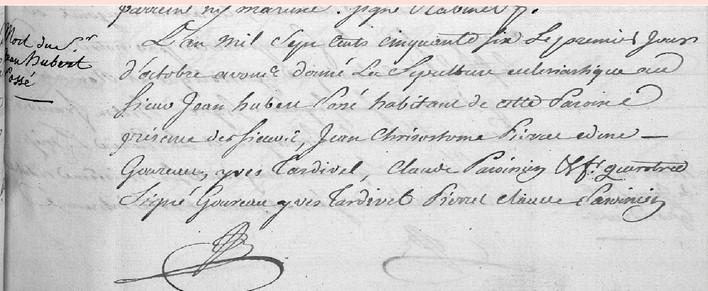 parrein ny marinne. Signé Rabinet
Mort du Sr
Jean hubert
Possé
L'an mil Sept Cents cinquante six Le premier Jour
d'octobre avons donné La Sepulture eclesiastique au
Sieur Jean huber Possé habitant de cette Paroisse
présence des sieurs, Jean Chrisostome Pierre edme
Goureau, yves Tardivel, Claude Paroissien
Signé Goureau yves Tardivel Pierre Claude Paroissien